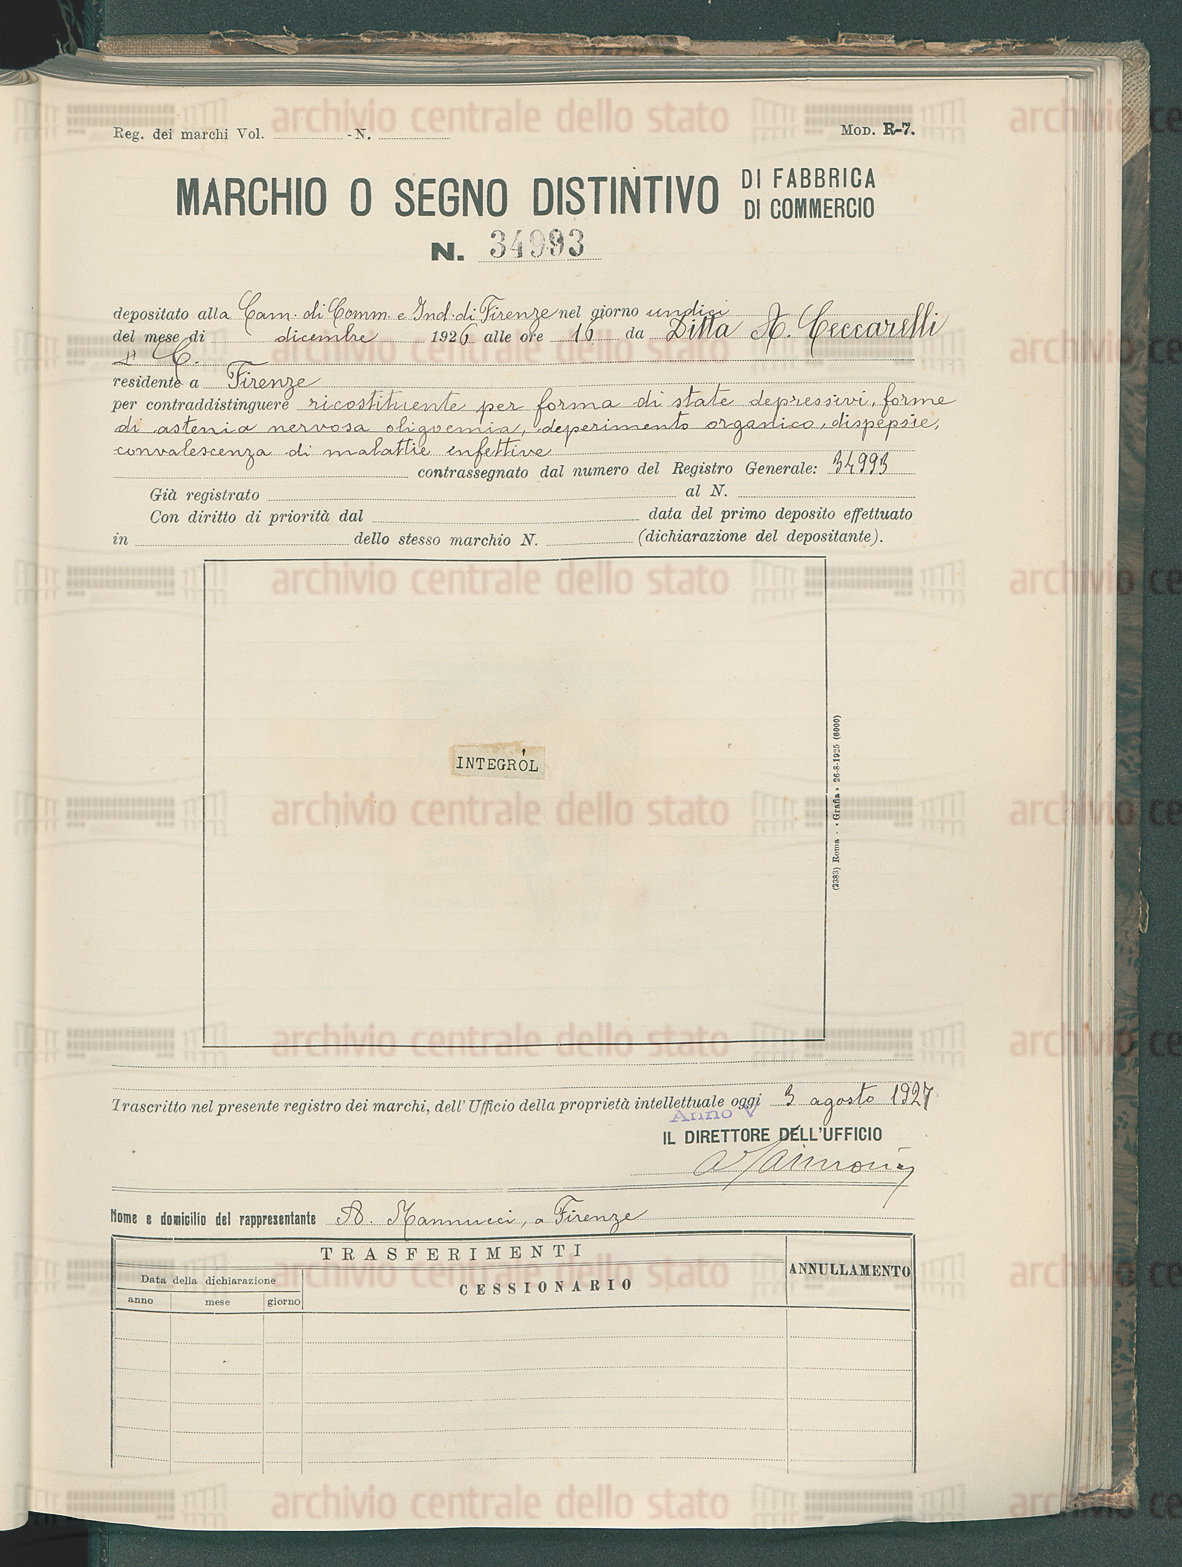 Reg. dei marchi Vol. - N.
MOD. R-7.
MARCHIO O SEGNO DISTINTIVO DI FABBRICA
DI COMMERCIO
N. 34993
depositato alla Cam. di Comm. e Ind. di Firenze nel giorno undici
del mese di dicembre 1926 alle ore 16 da Ditta A. Ceccarelli
& C.
residente a Firenze
per contraddistinguere ricostituente per forma di state depressivi, forme
di astenia nervosa oligoemia, deperimento organico, dispepsie,
convalescenza di malattie infettive
contrassegnato dal numero del Registro Generale: 34993
Già registrato al N.
Con diritto di priorità dal data del primo deposito effettuato
in dello stesso marchio N. (dichiarazione del depositante).
INTEGRÓL
(2383) Roma - «Grafia» 26-8-1925 (6000)
Trascritto nel presente registro dei marchi, dell'Ufficio della proprietà intellettuale oggi 3 agosto 1927
Anno V
IL DIRETTORE DELL'UFFICIO
Nome e domicilio del rappresentante A. Mannucci, a Firenze
TRASFERIMENTI
ANNULLAMENTO
Data della dichiarazione
CESSIONARIO
anno mese giorno
archivio centrale dello stato